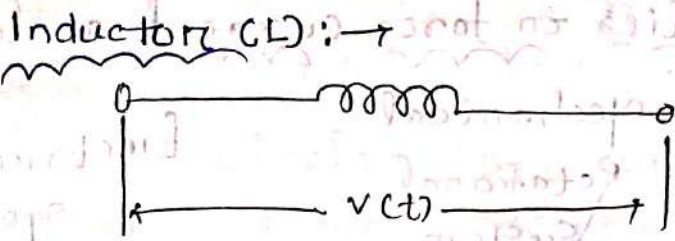 Inductor (L): →
v(t)